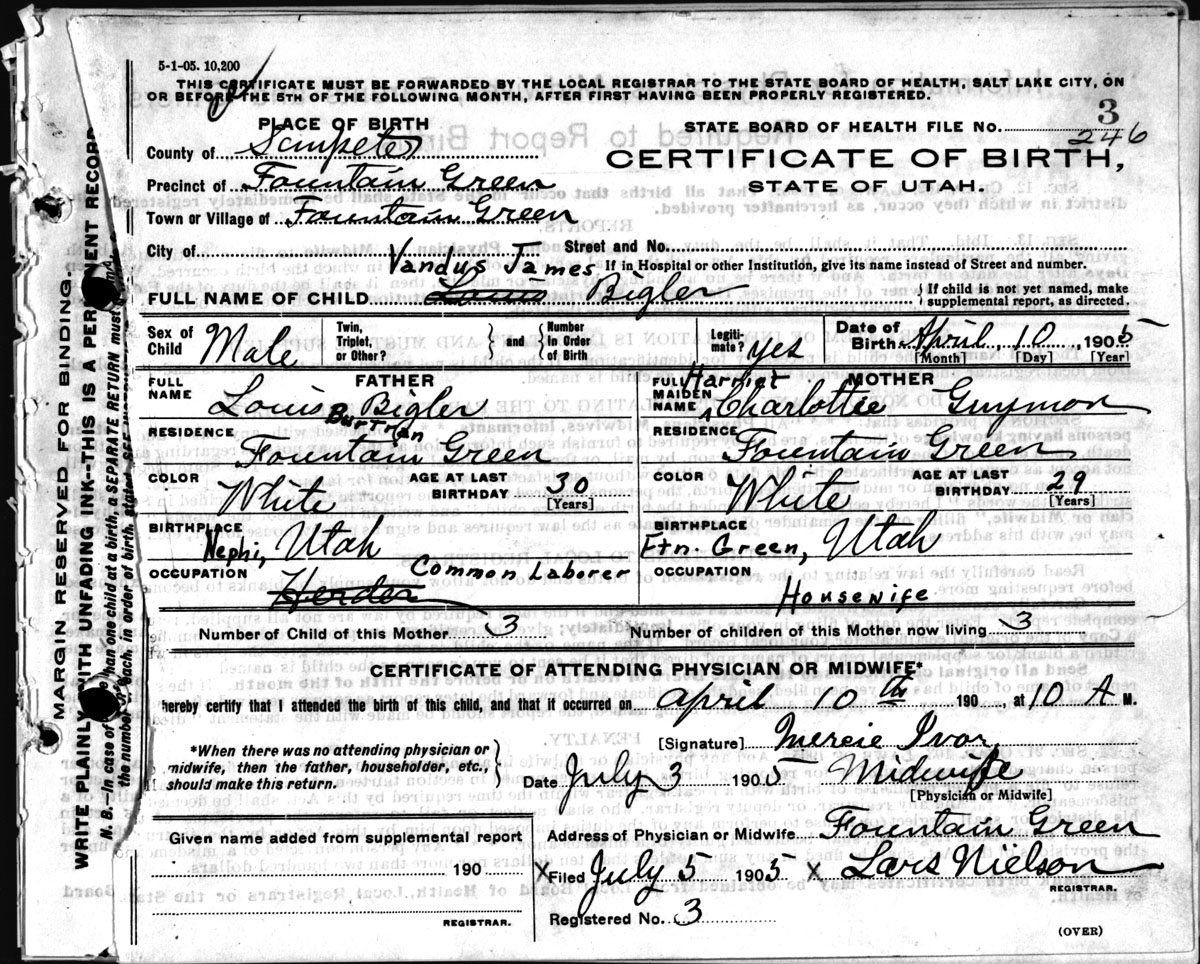 5-1-05. 10,200
THIS CERTIFICATE MUST BE FORWARDED BY THE LOCAL REGISTRAR TO THE STATE BOARD OF HEALTH, SALT LAKE CITY, ON
OR BEFORE THE 5TH OF THE FOLLOWING MONTH, AFTER FIRST HAVING BEEN PROPERLY REGISTERED.
3
PLACE OF BIRTH
STATE BOARD OF HEALTH FILE No. 246
County of Sanpete
CERTIFICATE OF BIRTH,
Precinct of Fountain Green
STATE OF UTAH.
Town or Village of Fountain Green
City of Street and No.
Vandus James If in Hospital or other Institution, give its name instead of Street and number.
FULL NAME OF CHILD Louis Bigler { If child is not yet named, make
supplemental report, as directed.
Sex of Child Male Twin, Triplet, or Other? } and { Number In Order of Birth Legiti-mate? yes Date of Birth April 10 1905
[Month] [Day] [Year]
FATHER
FULL NAME Louis Bertran Bigler
RESIDENCE Fountain Green
COLOR White AGE AT LAST BIRTHDAY 30 [Years]
BIRTHPLACE Nephi, Utah
OCCUPATION Herder Common Laborer
MOTHER
FULL MAIDEN NAME Harriet Charlottie Guymon
RESIDENCE Fountain Green
COLOR White AGE AT LAST BIRTHDAY 29 [Years]
BIRTHPLACE Ftn. Green, Utah
OCCUPATION Housewife
Number of Child of this Mother 3 Number of children of this Mother now living 3
CERTIFICATE OF ATTENDING PHYSICIAN OR MIDWIFE*
hereby certify that I attended the birth of this child, and that it occurred on April 10th 190 , at 10 A M.
*When there was no attending physician or
midwife, then the father, householder, etc.,
should make this return.
[Signature] Mercie Ivor
Date July 3 1905 Midwife
[Physician or Midwife]
Given name added from supplemental report
190
REGISTRAR.
Address of Physician or Midwife Fountain Green
X Filed July 5 1905 X Lars Nielson
REGISTRAR.
Registered No. 3
(OVER)
MARGIN RESERVED FOR BINDING.
WRITE PLAINLY WITH UNFADING INK--THIS IS A PERMANENT RECORD
N. B.--In case of more than one child at a birth, a SEPARATE RETURN must
the number of each in order of birth, stated.